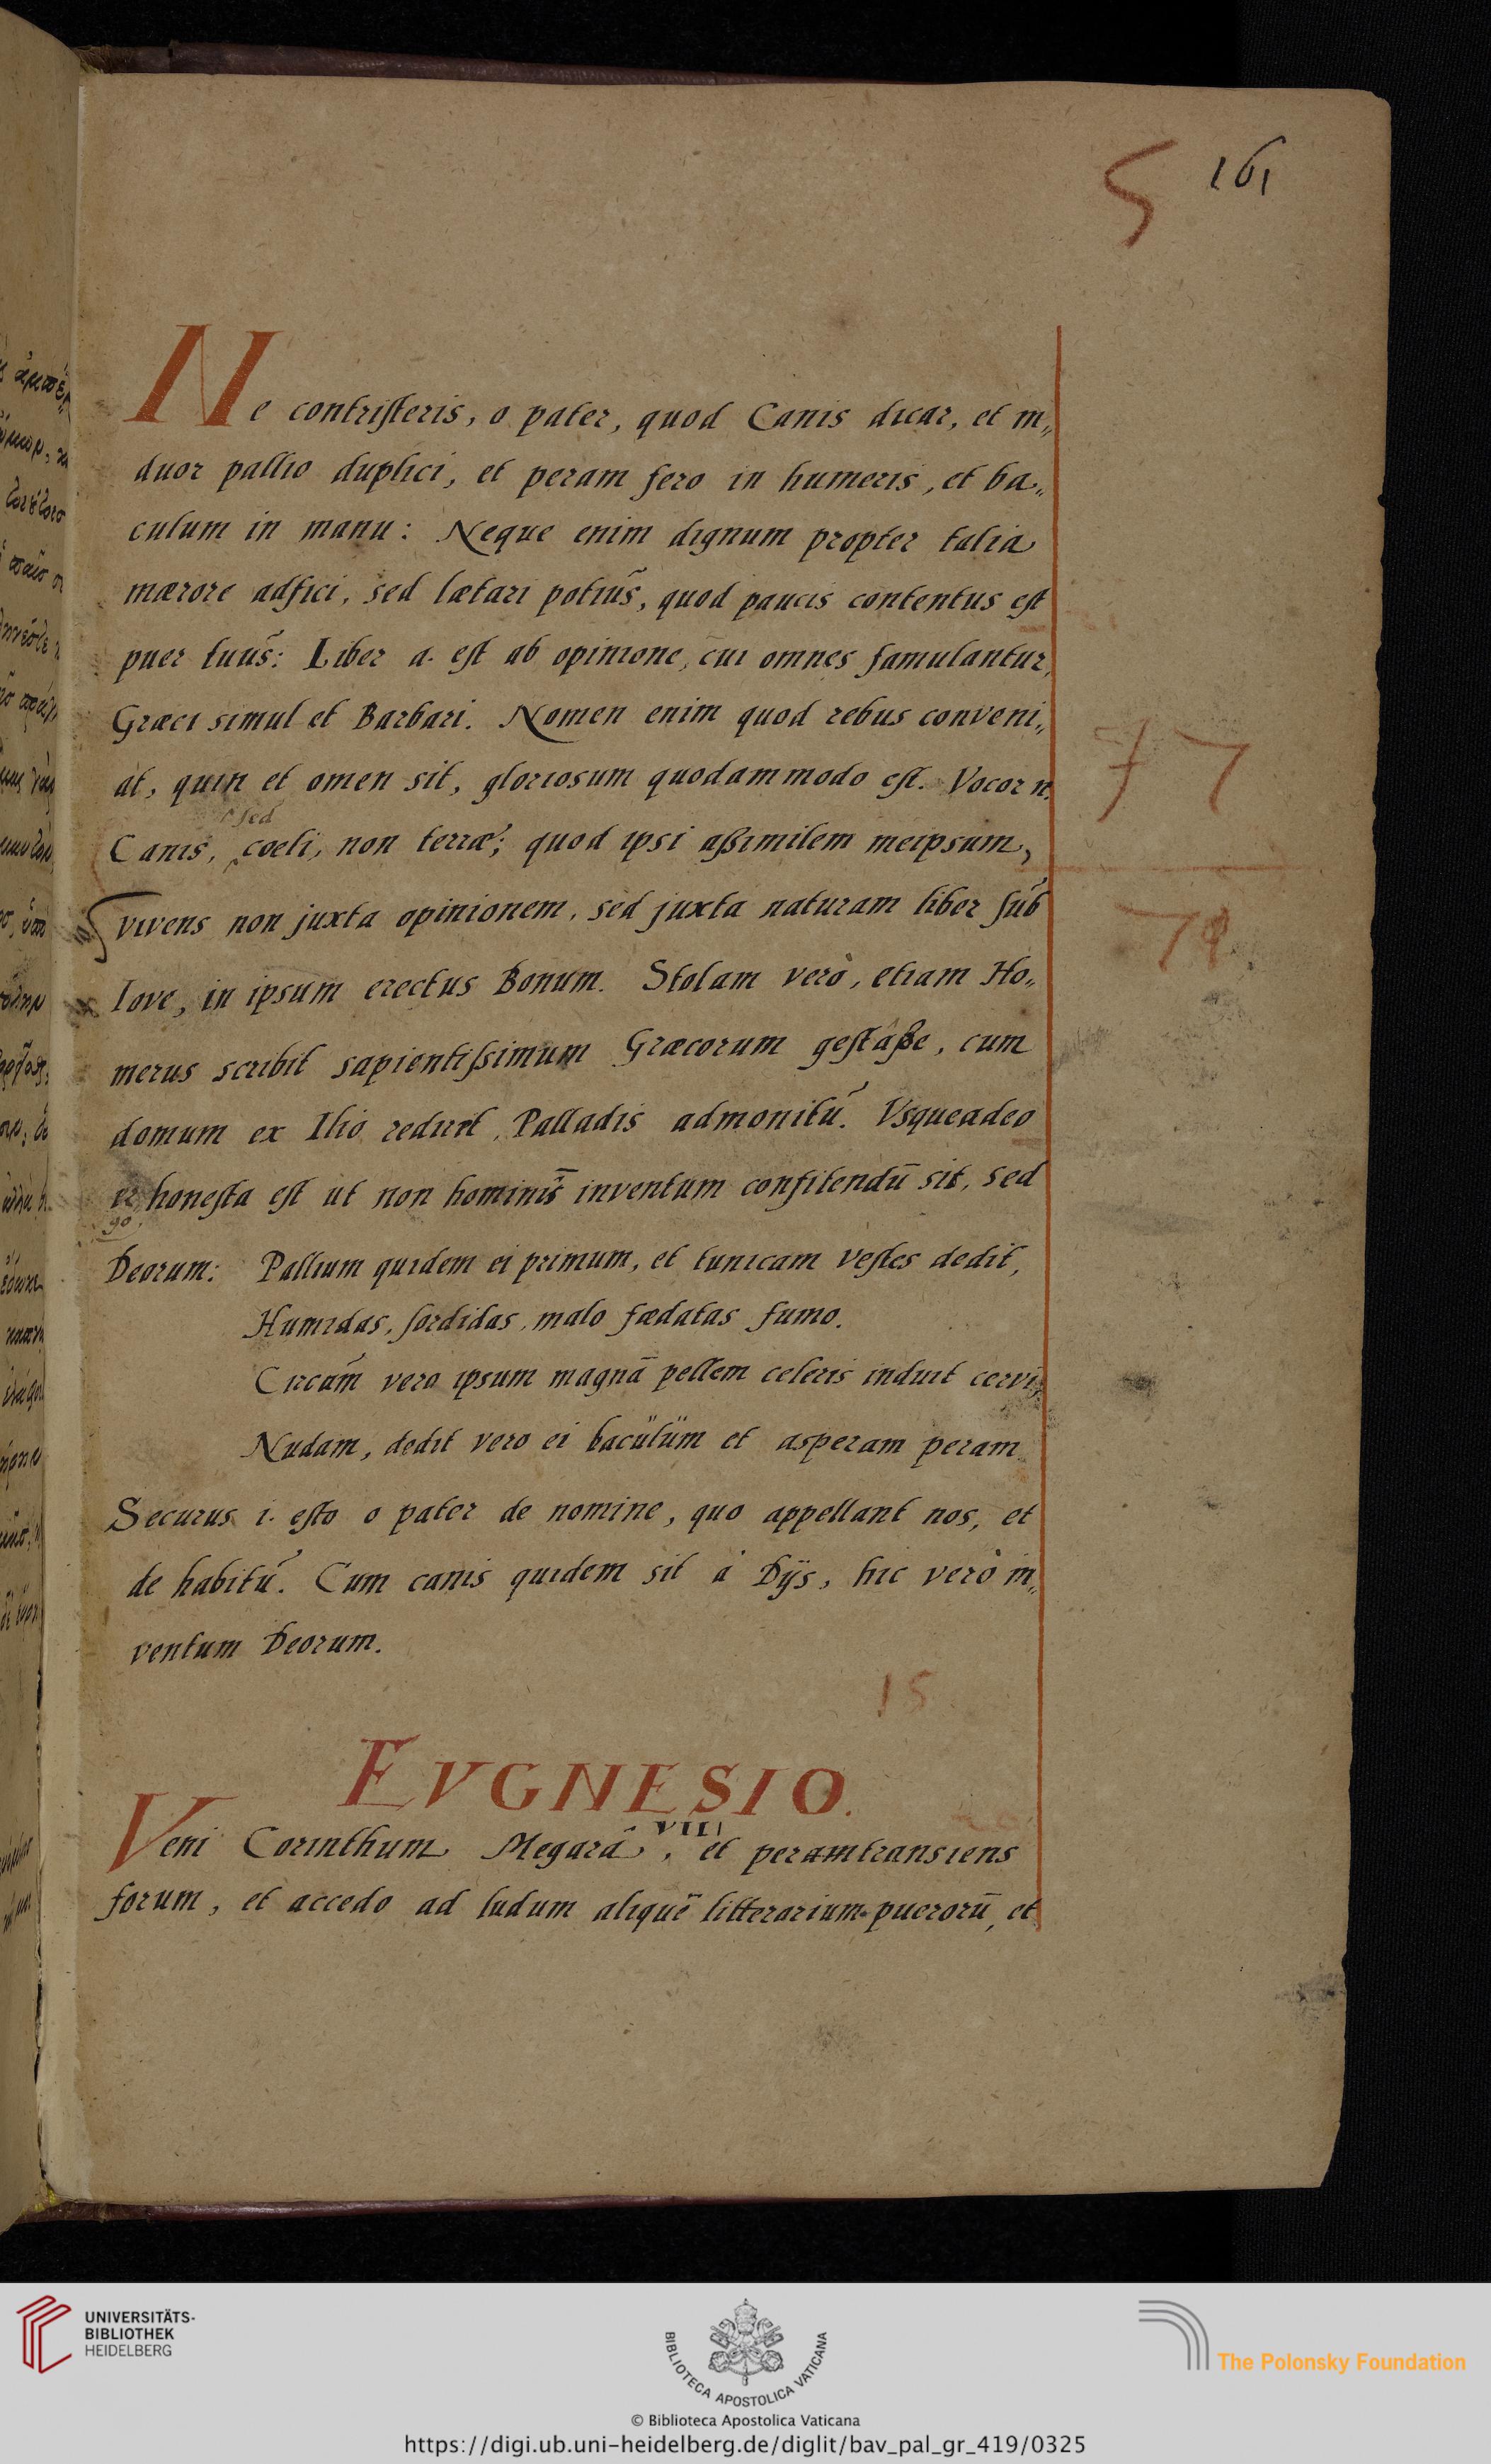 5 161
Ne contristeris, o pater, quod Canis dicar, et in„
duor pallio duplici, et peram fero in humeris, et ba„
culum in manu: Neque enim dignum propter talia
mærore adfici, sed lætari potius, quod paucis contentus est
puer tuus: Liber a. est ab opinione, cui omnes famulantur,
Græci simul et Barbari. Nomen enim quod rebus conveni„
at, quin et omen sit, gloriosum quodammodo est. Vocor n.
sed
Canis, coeli, non terræ; quod ipsi aßimilem meipsum,
vivens non juxta opinionem, sed juxta naturam liber sub
Iove, in ipsum erectus Bonum. Stolam verò, etiam Ho„
merus scribit sapientißimum Græcorum gestaße, cum
domum ex Ilio rediret, Palladis admonitu. Vsqueadeo
honesta est ut non hominis inventum confitendū sit, sed
go
Deorum: Pallium quidem ei primum, et tunicam vestes dedit,
Humidas, sordidas, malo fædatas fumo.
Circum vero ipsum magnā pellem celeris induit cervi,
Nudam, dedit vero ei baculum et asperam peram.
Securus i. esto o pater de nomine, quo appellant nos, et
de habitu. Cum canis quidem sit à Dijs, hic verò in„
ventum Deorum.
77
79
15
EVGNESIO.
VIII
Veni Corinthum Megarâ, et peramtransiens
forum, et accedo ad ludum aliquē litterarium puerorū, et
UNIVERSITÄTS-
BIBLIOTHEK
HEIDELBERG
BIBLIOTECA APOSTOLICA VATICANA
© Biblioteca Apostolica Vaticana
The Polonsky Foundation
https://digi.ub.uni-heidelberg.de/diglit/bav_pal_gr_419/0325